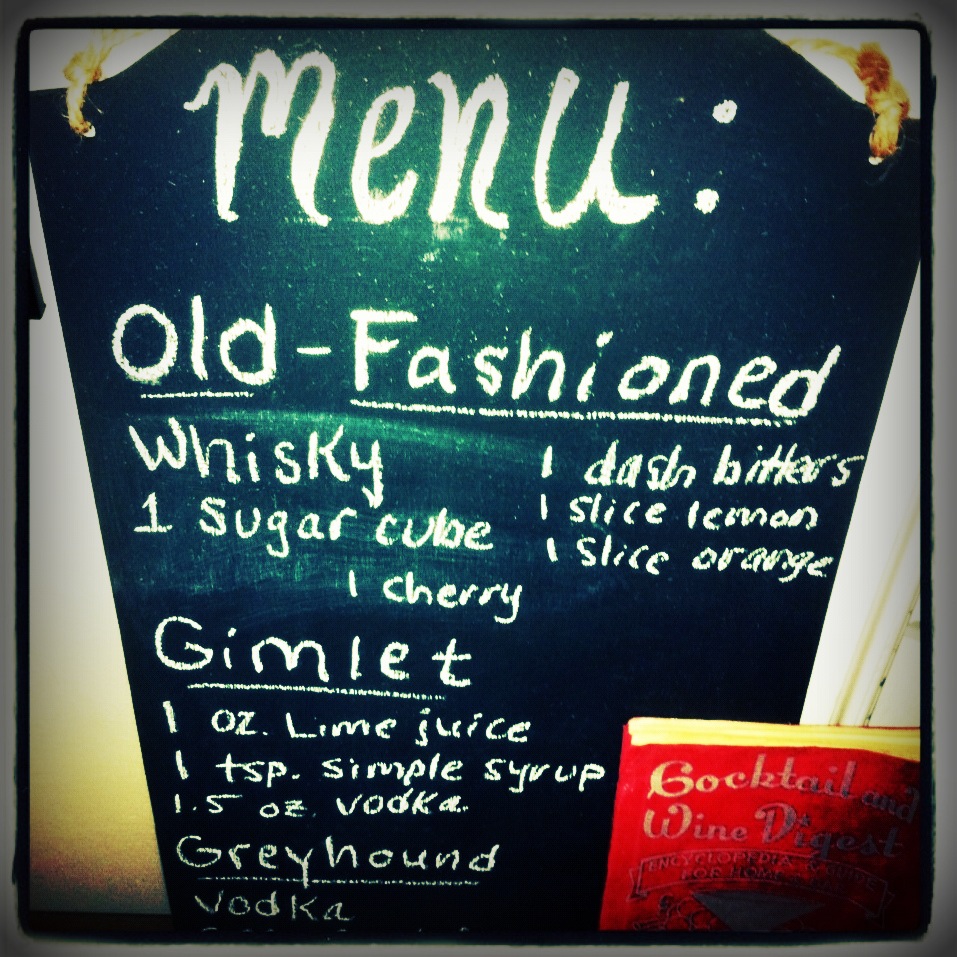 Menu:
Old-Fashioned
Whisky
1 Sugar cube
1 cherry
1 dash bitters
1 slice lemon
1 slice orange
Gimlet
1 oz. Lime juice
1 tsp. simple syrup
1.5 oz. vodka
Greyhound
Vodka
Cocktail and
Wine Digest
ENCYCLOPEDIA & GUIDE
FOR HOME